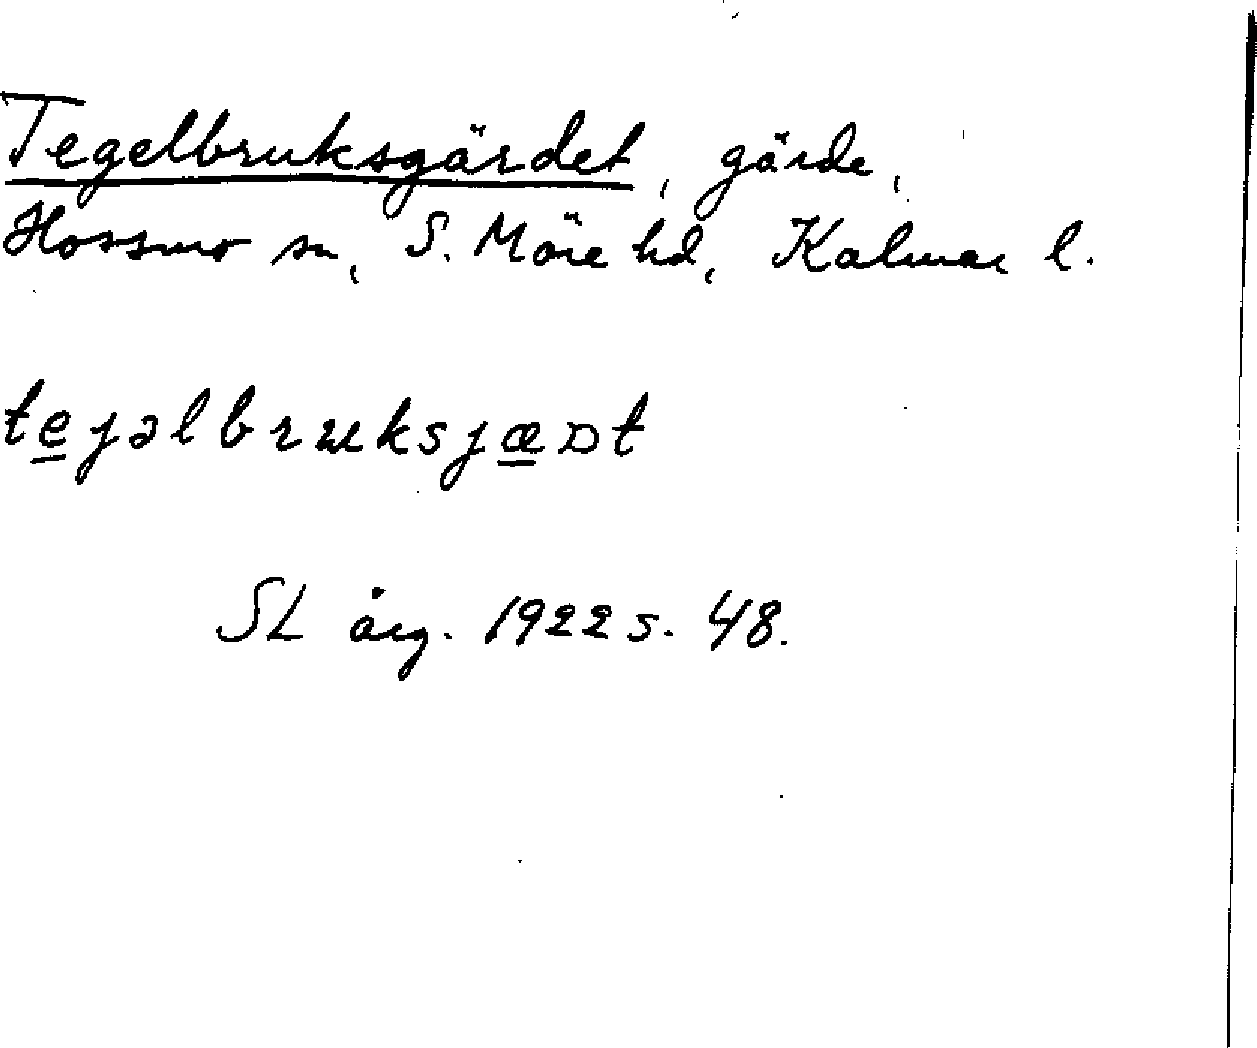 Tegelbruksgärdet, gärde,
Hossmo sn, S. Möre hd, Kalmar l.
tejəlbruksjæDt
SL årg. 1922 s. 48.